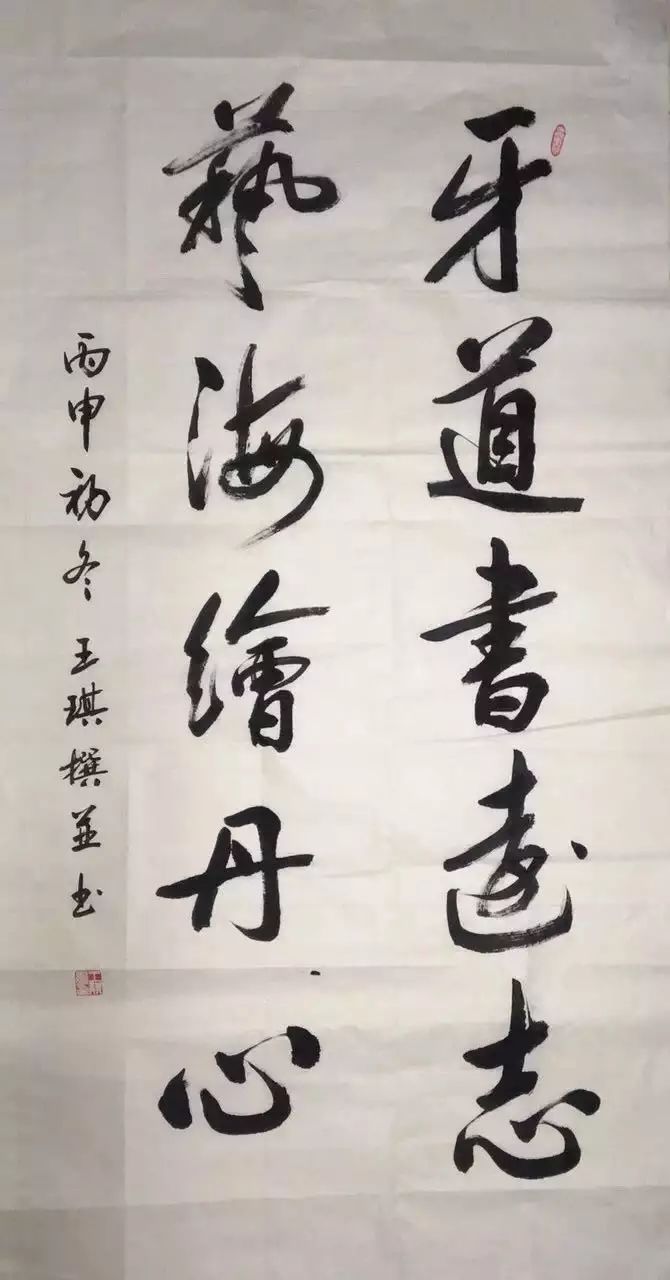 牙道書遠志
藝海繪丹心
丙申初冬 王琪撰並书